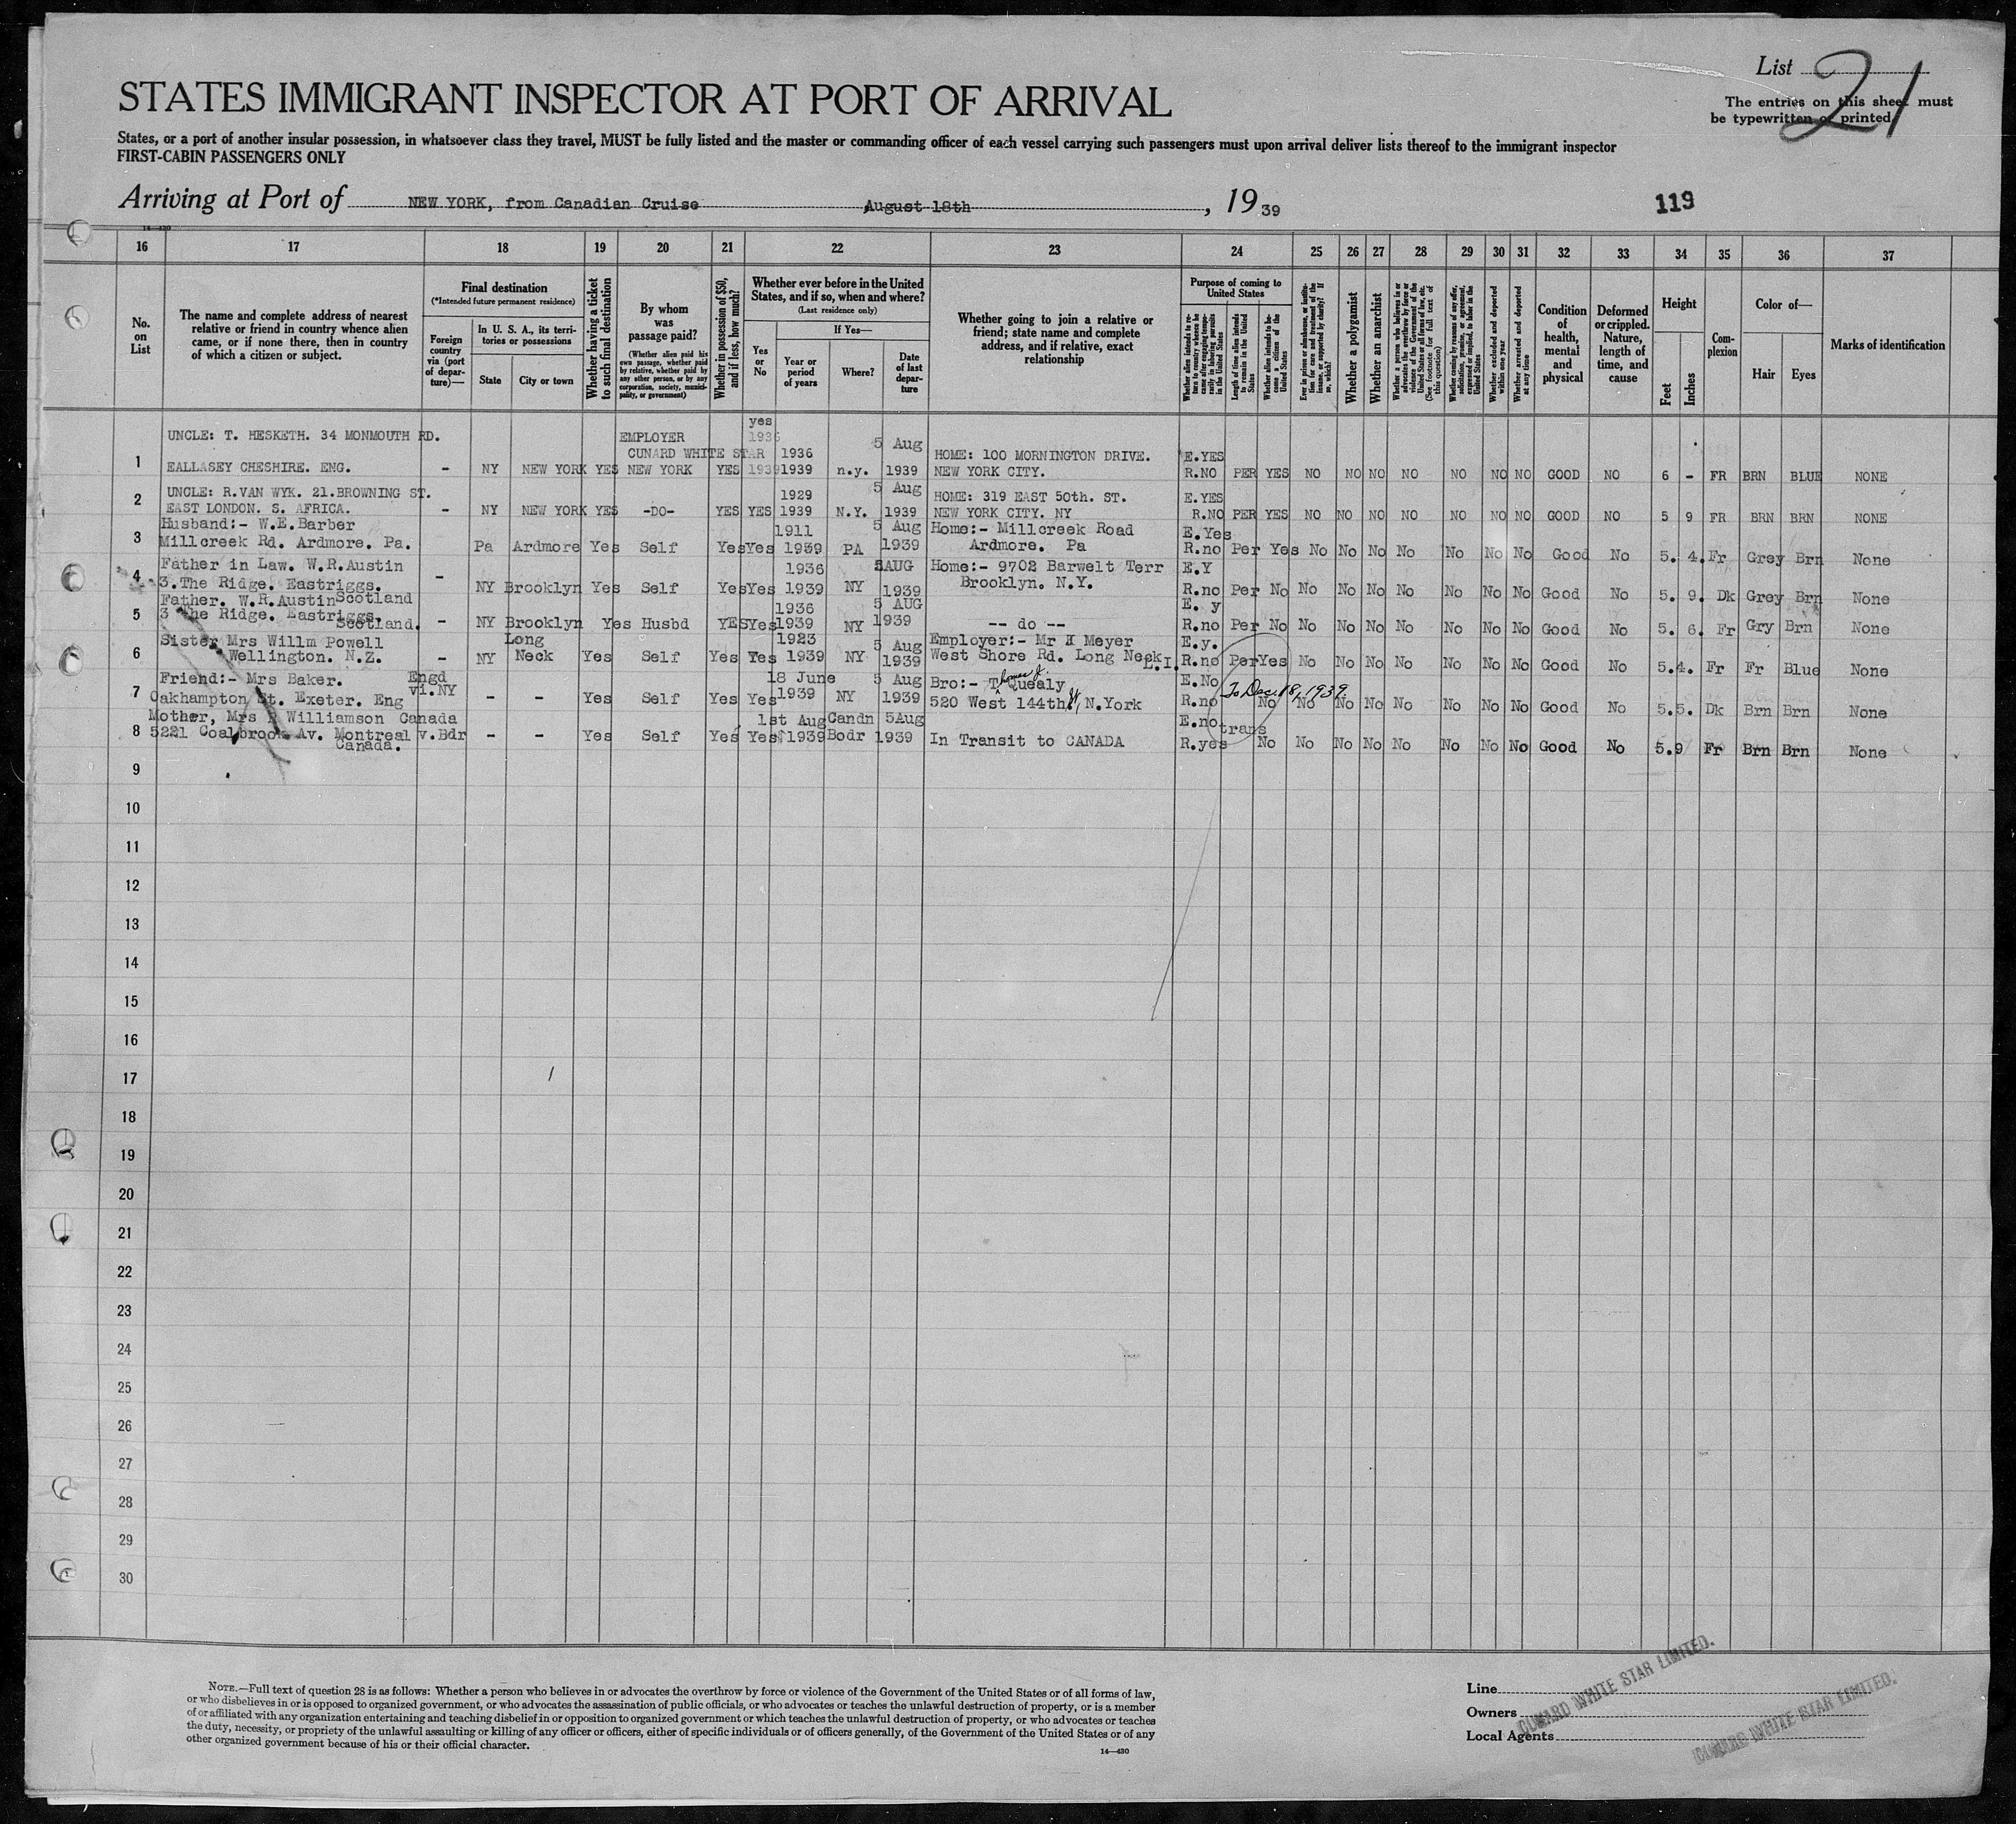 List 21
STATES IMMIGRANT INSPECTOR AT PORT OF ARRIVAL
The entries on this sheet must
be typewritten or printed.
States, or a port of another insular possession, in whatsoever class they travel, MUST be fully listed and the master or commanding officer of each vessel carrying such passengers must upon arrival deliver lists thereof to the immigrant inspector
FIRST-CABIN PASSENGERS ONLY
Arriving at Port of NEW YORK, from Canadian Cruise , August 18th , 19 39
119
14—430
16 17 18 19 20 21 22 23 24 25 26 27 28 29 30 31 32 33 34 35 36 37
No. on List
The name and complete address of nearest relative or friend in country whence alien came, or if none there, then in country of which a citizen or subject.
Final destination
(*Intended future permanent residence)
Foreign country via (port of departure)—
In U. S. A., its territories or possessions
State
City or town
Whether having a ticket to such final destination
By whom was passage paid?
(Whether alien paid his own passage, whether paid by relative, whether paid by any other person, or by any corporation, society, municipality, or government)
Whether in possession of $50, and if less, how much?
Whether ever before in the United States, and if so, when and where?
(Last residence only)
Yes or No
If Yes—
Year or period of years
Where?
Date of last departure
Whether going to join a relative or friend; state name and complete address, and if relative, exact relationship
Purpose of coming to United States
Whether alien intends to return to country whence he came after engaging temporarily in laboring pursuits in the United States
Length of time alien intends to remain in the United States
Whether alien intends to become a citizen of the United States
Ever in prison or almshouse, or institution for care and treatment of the insane, or supported by charity? If so, which?
Whether a polygamist
Whether an anarchist
Whether a person who believes in or advocates the overthrow by force or violence of the Government of the United States or all forms of law, etc. (See footnote for full text of this question)
Whether coming by reasons of any offer, solicitation, promise, or agreement, expressed or implied, to labor in the United States
Whether excluded and deported within one year
Whether arrested and deported at any time
Condition of health, mental and physical
Deformed or crippled. Nature, length of time, and cause
Height
Feet
Inches
Complexion
Color of—
Hair
Eyes
Marks of identification
UNCLE: T. HESKETH. 34 MONMOUTH RD. EMPLOYER yes 1936 5 Aug
CUNARD WHITE STAR 1936 HOME: 100 MORNINGTON DRIVE. E.YES
1 EALLASEY CHESHIRE. ENG. - NY NEW YORK YES NEW YORK YES 1939 1939 n.y. 1939 NEW YORK CITY. R.NO PER YES NO NO NO NO NO NO NO GOOD NO 6 - FR BRN BLUE NONE
UNCLE: R.VAN WYK. 21.BROWNING ST. 1929 5 Aug HOME: 319 EAST 50th. ST. E.YES
2 EAST LONDON. S. AFRICA. - NY NEW YORK YES -DO- YES YES 1939 N.Y. 1939 NEW YORK CITY. NY R.NO PER YES NO NO NO NO NO NO NO GOOD NO 5 9 FR BRN BRN NONE
Husband:- W.E.Barber 1911 5 Aug Home:- Millcreek Road E.Yes
3 Millcreek Rd. Ardmore. Pa. Pa Ardmore Yes Self Yes Yes 1939 PA 1939 Ardmore. Pa R.no Per Yes No No No No No No No Good No 5. 4. Fr Grey Brn None
Father in Law. W.R.Austin 1936 5AUG Home:- 9702 Barwelt Terr E.Y
4 3.The Ridge. Eastriggs. Scotland - NY Brooklyn Yes Self Yes Yes 1939 NY 1939 Brooklyn. N.Y. R.no Per No No No No No No No No Good No 5. 9. Dk Grey Brn None
Father. W.R.Austin 1936 5 AUG E. y
5 3 The Ridge. Eastriggs. Scotland. - NY Brooklyn Yes Husbd YES Yes 1939 NY 1939 -- do -- R.no Per No No No No No No No No Good No 5. 6. Fr Gry Brn None
Sister Mrs Willm Powell Long 1923 5 Aug Employer:- Mr H Meyer E.y.
6 Wellington. N.Z. - NY Neck Yes Self Yes Yes 1939 NY 1939 West Shore Rd. Long Neck L.I. R.no Per Yes No No No No No No No Good No 5.4. Fr Fr Blue None
Friend:- Mrs Baker. Engd 18 June 5 Aug Bro:- Thomas J. Quealy E.No To Dec. 18, 1939.
7 Oakhampton St. Exeter. Eng vi.NY - - Yes Self Yes Yes 1939 NY 1939 520 West 144th St, N.York R.no No No No No No No No No Good No 5.5. Dk Brn Brn None
Mother, Mrs R Williamson Canada 1st Aug Candn 5Aug E.no trans
8 5221 Coalbrook Av. Montreal Canada. v.Bdr - - Yes Self Yes Yes 1939 Bodr 1939 In Transit to CANADA R.yes No No No No No No No No Good No 5.9 Fr Brn Brn None
9
10
11
12
13
14
15
16
17
18
19
20
21
22
23
24
25
26
27
28
29
30
NOTE.—Full text of question 28 is as follows: Whether a person who believes in or advocates the overthrow by force or violence of the Government of the United States or of all forms of law,
or who disbelieves in or is opposed to organized government, or who advocates the assassination of public officials, or who advocates or teaches the unlawful destruction of property, or is a member
of or affiliated with any organization entertaining and teaching disbelief in or opposition to organized government or which teaches the unlawful destruction of property, or who advocates or teaches
the duty, necessity, or propriety of the unlawful assaulting or killing of any officer or officers, either of specific individuals or of officers generally, of the Government of the United States or of any
other organized government because of his or their official character.
14—430
Line
Owners
Local Agents
CUNARD WHITE STAR LIMITED.
CUNARD WHITE STAR LIMITED.